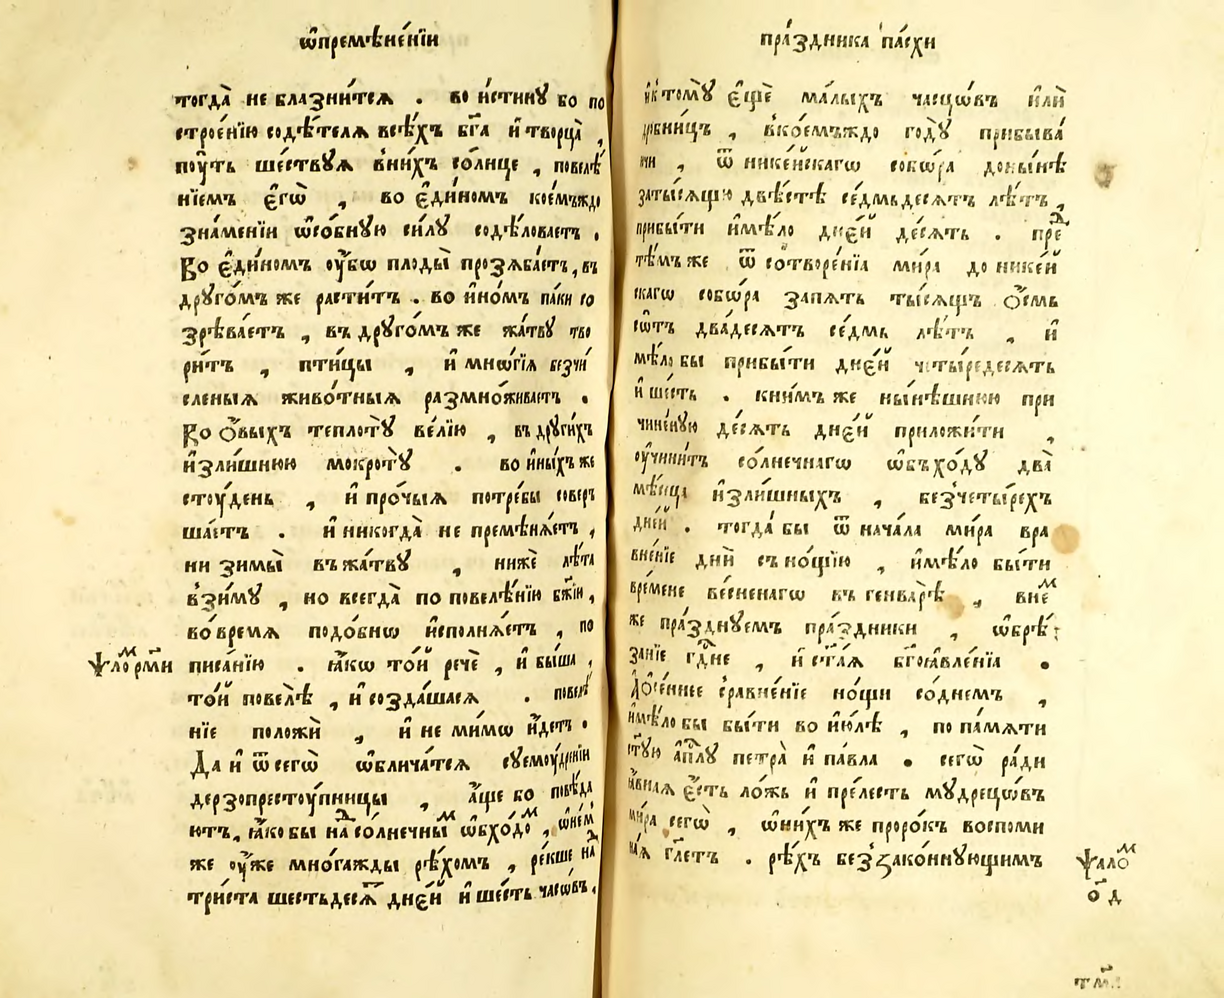 ѡ҆премѣне́нїи
тогда̀ не блазни́тсѧ . во и҆́стинꙋ бо по
строе́нїю содѣ́телѧ всѣ́хъ бг҃а и҆ творца̀ ,
поу́ть ше́ствꙋѧ в̾ни́хъ со́лнце , повелѣ́
нїемъ є҆гѡ̀ , во є҆ди́номъ кое́мъждо
зна́менїи ѡ҆со́бнꙋю си́лꙋ содѣ́ловаетъ .
Во є҆ди́номъ оу҆́бѡ плоды̀ прозѧба́етъ , въ
дрꙋго́мъ же расти́тъ . во и҆но́мъ па́ки со
зрѣва́етъ , въ дрꙋго́мъ же жа́твꙋ тво
ри́тъ , пти́цы , и҆ мнѡ́гїѧ безчи́
сленыѧ живо́тныѧ размно́живаетъ .
Во ѻ҆́выхъ теплотꙋ̀ ве́лїю , въ дрꙋги́хъ
и҆зли́шнюю мокротꙋ̀ . во и҆ны́хъ же
стоу́день , и҆ про́чыѧ потре́бы соверъ
ша́етъ . и҆ никогда̀ не премѣнѧ́етъ ,
ни зимы̀ въ жа́твꙋ , нижѐ лѣ́та
в̾зи́мꙋ , но всегда̀ по повелѣ́нїю бж҃їи ,
во́ времѧ подо́бнѡ и҆сполнѧ́етъ , по
писа́нїю . ꙗ҆́кѡ то́й речѐ , и҆ бы́ша ,
ѱало́м рм҃и
то́й повелѣ̀ , и҆ созда́шасѧ . повелѣ́
нїе положѝ , и҆ не ми́мѡ и҆́детъ .
Да и҆ ѿ сегѡ̀ ѡ҆блича́тсѧ сꙋемоу́дренїи
дерзопрестоу́пницы , а҆́ще бо повѣ́да
ютъ , ꙗ҆́кобы на́д со́лнечным ѡ҆бхо́дом , ѡ҆не́м
же оу҆́же многа́жды рѣ́хомъ , ре́кше на́д
три́ста шестьдесѧ́т дне́й и҆ ше́сть часѡ́въ .
пра́здника па́схи
и҆ к томꙋ̀ є҆щѐ ма́лыхъ часцѡ́въ и҆лѝ
дробни́цъ , в̾кое́мъждо годꙋ̀ прибыва́
ючи , ѿ нике́йскагѡ собѡ́ра донынѣ̀
за ты́сѧщю двѣ́стѣ се́дмьдесѧтъ лѣ́тъ ,
прибы́ти и҆мѣ́ло дне́й де́сѧть . пре́д
тѣ́мъ же ѿ сотворе́нїѧ ми́ра до нике́й
скагѡ собѡ́ра за пѧ́ть ты́сѧщъ ѻ҆́смь
сѡ́тъ два́десѧтъ се́дмь лѣ́тъ , и҆
мѣ́ло бы прибы́ти дне́й четы́редесѧтъ
и҆ ше́сть . к ни́мъ же ны́нѣшнюю при
чине́нꙋю де́сѧть дне́й приложи́ти ,
оу҆чини́тъ со́лнечнагѡ ѡ҆бъхо́дꙋ два̀
мѣ́сѧца и҆зли́шныхъ , без̾четы́рехъ
дне́й . тогда́ бы ѿ нача́ла ми́ра вра
вне́нїе днѝ съ но́щїю , и҆мѣ́ло бы́ти
вре́мене ве́сненагѡ въ генварѣ̀ , вне́м
же пра́зднꙋемъ пра́здники , ѡ҆брѣ́
занїе гд҃не , и҆ ст҃а́ѧ бг҃оꙗвле́нїѧ .
А ѻ҆се́ннее сравне́нїе но́щи со дне́мъ ,
и҆мѣ́ло бы бы́ти во и҆ю́лѣ , по па́мѧти
ст҃у́ю а҆п҃лꙋ петра̀ и҆ па́вла . сегѡ̀ ра́ди
ꙗ҆́внаѧ є҆́сть ло́жь и҆ пре́лесть мꙋдрецѡ́въ
ми́ра сегѡ̀ , ѡ҆ни́хъ же проро́къ воспоми
на́ѧ гл҃етъ . рѣ́хъ без̾зако́ннꙋющимъ
ѱало́м
ѻ҃д